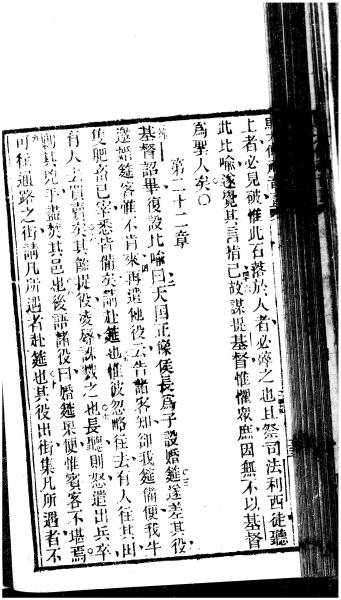 上者必見破惟此石落於人者必碎之也且祭司法利西徒聽
此比喻遂覺其言指已故謀捉基督惟懼衆庶因無不以基督
為聖人矣○
第二十二章
基督詔畢復設比喻曰天國正像侯長為子設婚筵遂差其役
邀婚筵客惟不肯來再遣他役云告諸客知卻我筵備便我牛
隻肥畜已宰悉皆備矣請赴筵也惟彼忽略往去有人往其田
有人之買賣矣其餘捉役凌辱誅戮之也長聽則怒遣出兵卒
其兇手盡焚其邑也後語諸役曰婚筵果便惟賓客不堪焉
可往通路之街請凡所遇者赴筵也其役出街集凡所遇者不